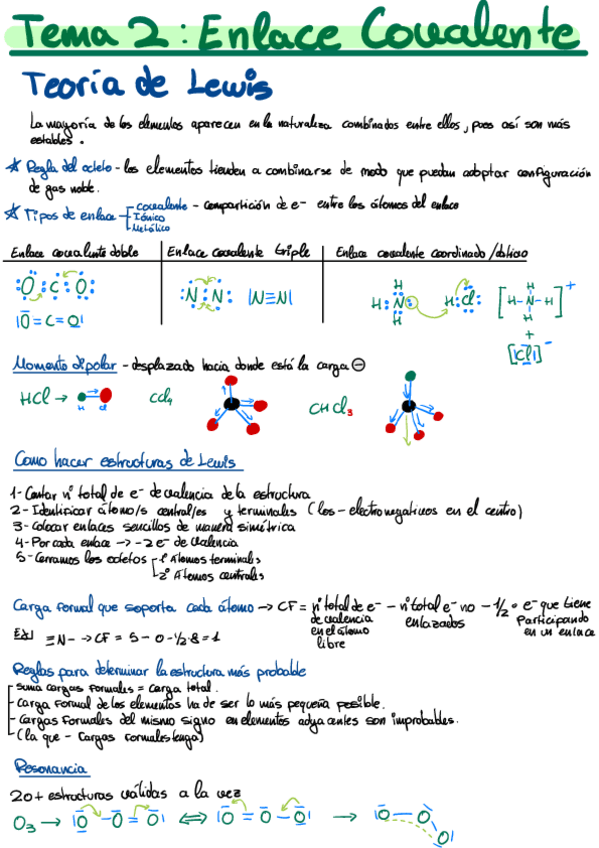 Tema 2: Enlace Covalente
Teoría de Lewis
La mayoría de los elementos aparecen en la naturaleza combinados entre ellos, pues así son más
estables.
* Regla del octeto - los elementos tienden a combinarse de modo que puedan adoptar configuración
de gas noble.
* Tipos de enlace
Covalente - compartición de e- entre los átomos del enlace
Iónico
Metálico
Enlace covalente doble
Enlace covalente triple
Enlace covalente coordinado/dativo
O C O
N N |N≡N|
H N H H Cl [H-N-H]+
H H
H H
+
|O=C=O|
[|Cl|]-
Momento dipolar - desplazado hacia donde está la carga ⊖
HCl →
H Cl
CCl4
CHCl3
Como hacer estructuras de Lewis
1- Contar nº total de e- de valencia de la estructura
2- Identificar átomo/s central/es y terminales (los - electronegativos en el centro)
3- Colocar enlaces sencillos de manera simétrica
4- Por cada enlace -> -2 e- de valencia
5- Cerramos los octetos
1º Átomos terminales
2º Átomos centrales
Carga formal que soporta cada átomo → CF = nº total de e- de valencia en el átomo libre - nº total e- no enlazados - 1/2 · e- que tiene Participando en un enlace
≡N- -> CF = 5 - 0 - 1/2·8 = 1
Reglas para determinar la estructura más probable
- suma cargas formales = carga total.
- Carga formal de los elementos ha de ser lo más pequeña posible.
- Cargas formales del mismo signo en elementos adyacentes son improbables.
- (la que - Cargas formales tenga)
Resonancia
2 o + estructuras válidas a la vez
O3 → |O-O=O| ⟺ |O=O-O| → |O-O O|